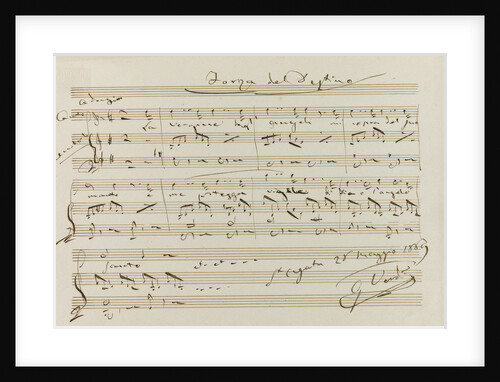 Forza del Destino
Adagio
La vergine degli angeli mi copra del suo
manto e me protegga vigile di Dio l'angelo
santo
25 Maggio
G Verdi